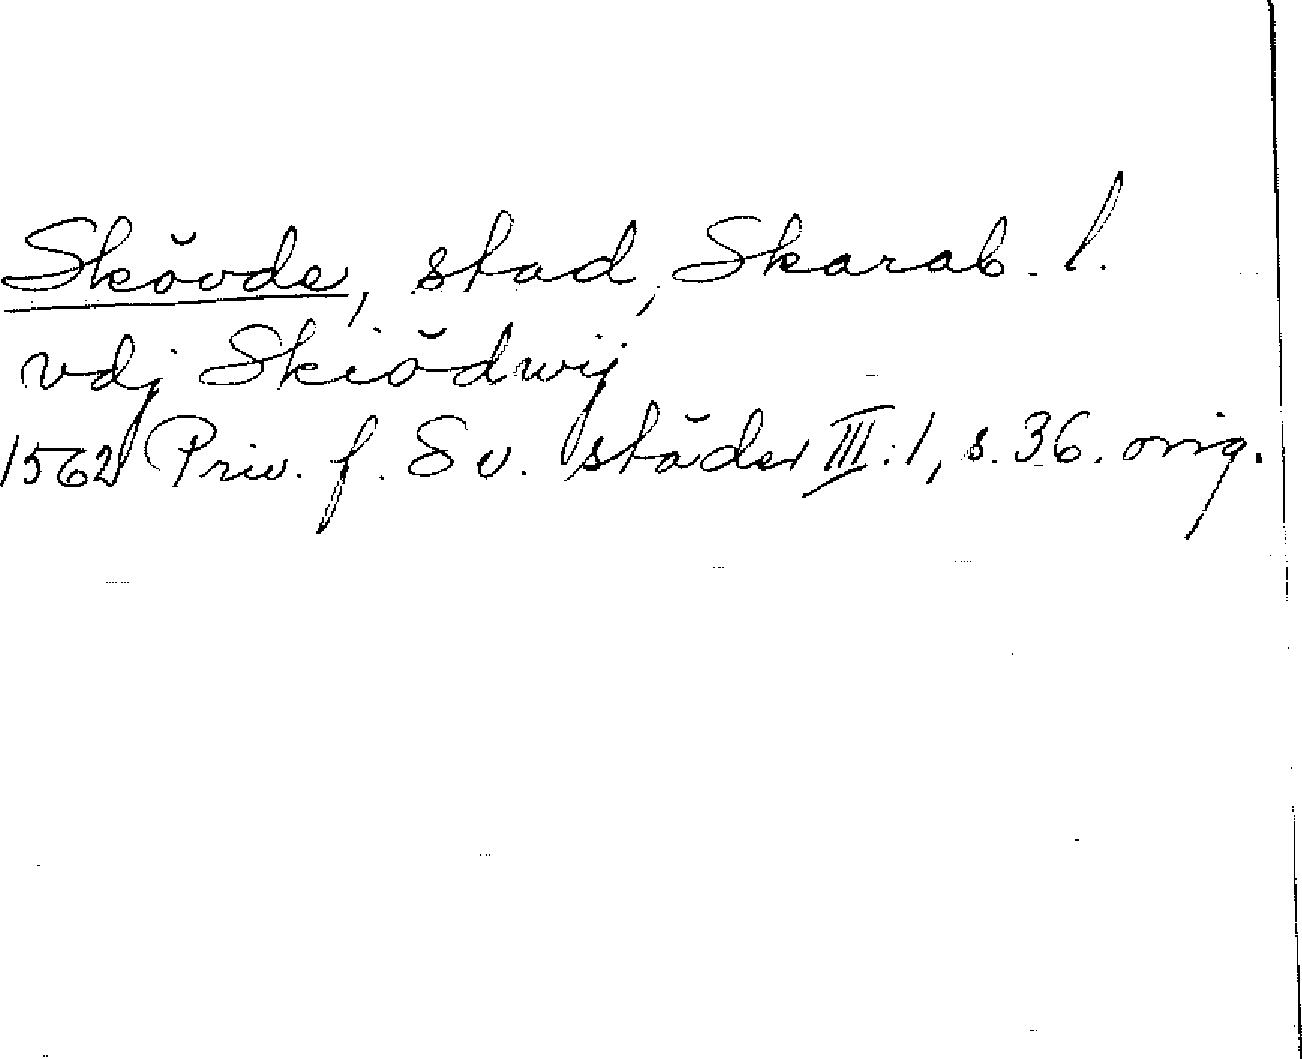 Skövde, stad, Skarab. l.
vdj Skiödwij
1562 Priv. f. Sv. städer III:1, s. 36. orig.